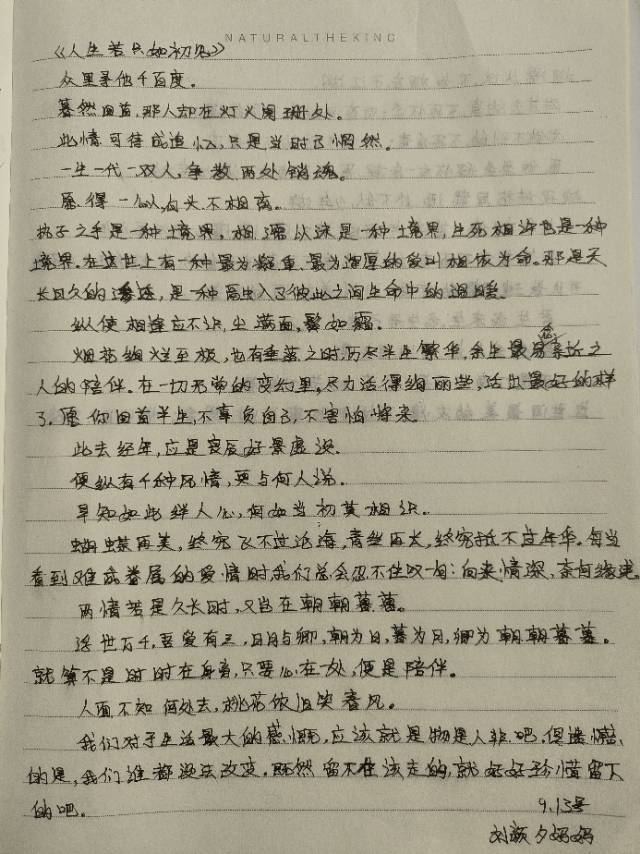 NATURALTHEKING
《人生若只如初见》
众里寻他千百度。
蓦然回首，那人却在灯火阑珊处。
此情可待成追忆，只是当时已惘然。
一生一代一双人，争教两处销魂。
愿得一人心，白头不相离。
执子之手是一种境界，相濡以沫是一种境界，生死相许也是一种
境界。在这世上有一种最为凝重、最为浑厚的爱叫相依为命。那是天
长日久的渗透，是一种融入了彼此之间生命中的温暖。
纵使相逢应不识，尘满面，鬓如霜。
烟花绚烂至极，也有垂落之时，历尽半生繁华，余生最 亲近之
人的陪伴。在一切无常的变幻里，尽力活得绚丽些，活出最好的样
子。愿你回首半生，不辜负自己，不害怕将来。
此去经年，应是良辰好景虚设。
便纵有千种风情，更与何人说。
早知如此绊人心，何如当初莫相识。
蝴蝶再美，终究飞不过沧海，青丝再长，终究抵不过年华。每当
看到难成眷属的爱情时我们总会忍不住叹一句：向来情深，奈何缘浅。
两情若是久长时，又岂在朝朝暮暮。
浮世万千，吾爱有三，日月与卿，朝为日，暮为月，卿为朝朝暮暮。
就算不是时时在身旁，只要心在一处，便是陪伴。
人面不知何处去，桃花依旧笑春风。
我们对于生活最大的感慨，应该就是物是人非吧，但遗憾
的是，我们谁都没法改变。既然留不住该走的，就好好珍惜留下
的吧。
9.13号
刘颖夕妈妈